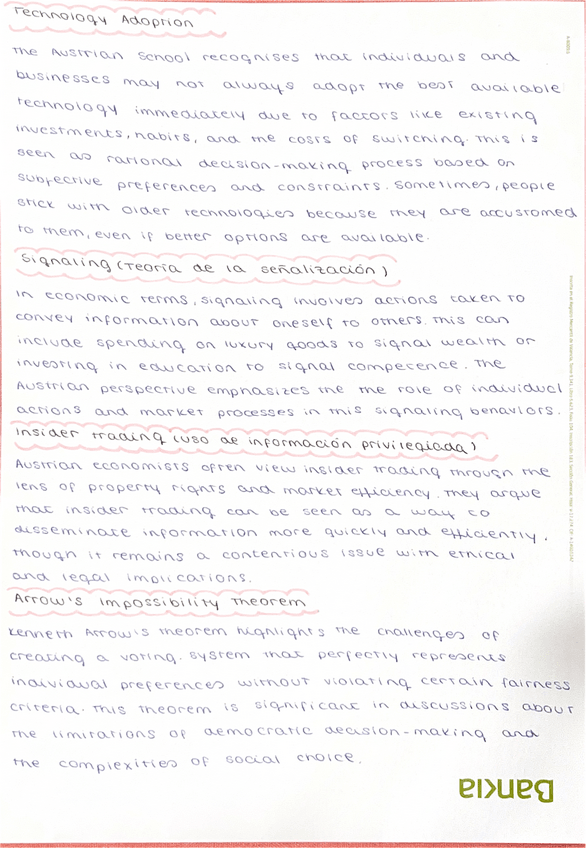 Technology Adoption
The Austrian School recognises that individuals and
businesses may not always adopt the best available
technology immediately due to factors like existing
investments, habits, and the costs of switching. This is
seen as rational decision-making process based on
subjective preferences and constraints. Sometimes, people
stick with older technologies because they are accustomed
to them, even if better options are available.
Signaling (Teoría de la señalización)
In economic terms, signaling involves actions taken to
convey information about oneself to others. This can
include spending on luxury goods to signal wealth or
investing in education to signal competence. The
Austrian perspective emphasizes the the role of individual
actions and market processes in this signaling behaviors.
Insider trading (uso de información privilegiada)
Austrian economists often view insider trading through the
lens of property rights and market efficiency. They argue
that insider trading can be seen as a way to
disseminate information more quickly and efficiently,
though it remains a contentious issue with ethical
and legal implications.
Arrow's Impossibility Theorem
Kenneth Arrow's theorem highlights the challenges of
creating a voting. system that perfectly represents
individual preferences without violating certain fairness
criteria. This theorem is significant in discussions about
the limitations of democratic decision-making and
the complexities of social choice.
Bankia